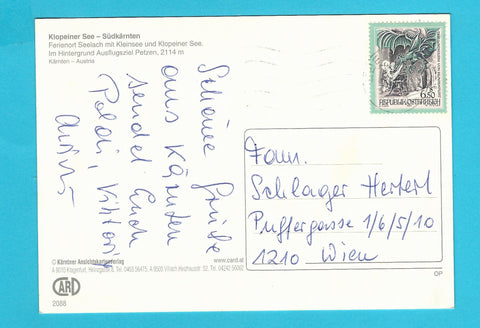 Klopeiner See – Südkärnten
Ferienort Seelach mit Kleinsee und Klopeiner See.
Im Hintergrund Ausflugsziel Petzen, 2114 m
Kärnten – Austria
Schöne Grüße
aus Kärnten
sendet Euch
Poldi, Viktoria
6.50
REPUBLIK ÖSTERREICH
Fam.
Schlager Herbert
Puffergasse 1/6/5/10
1210 Wien
© Kärntner Ansichtskartenverlag
www.card.at
A 9010 Klagenfurt,
Tel. 0463 56475, A 9500 Villach
Tel. 04242 56062
CARD
OP
2088